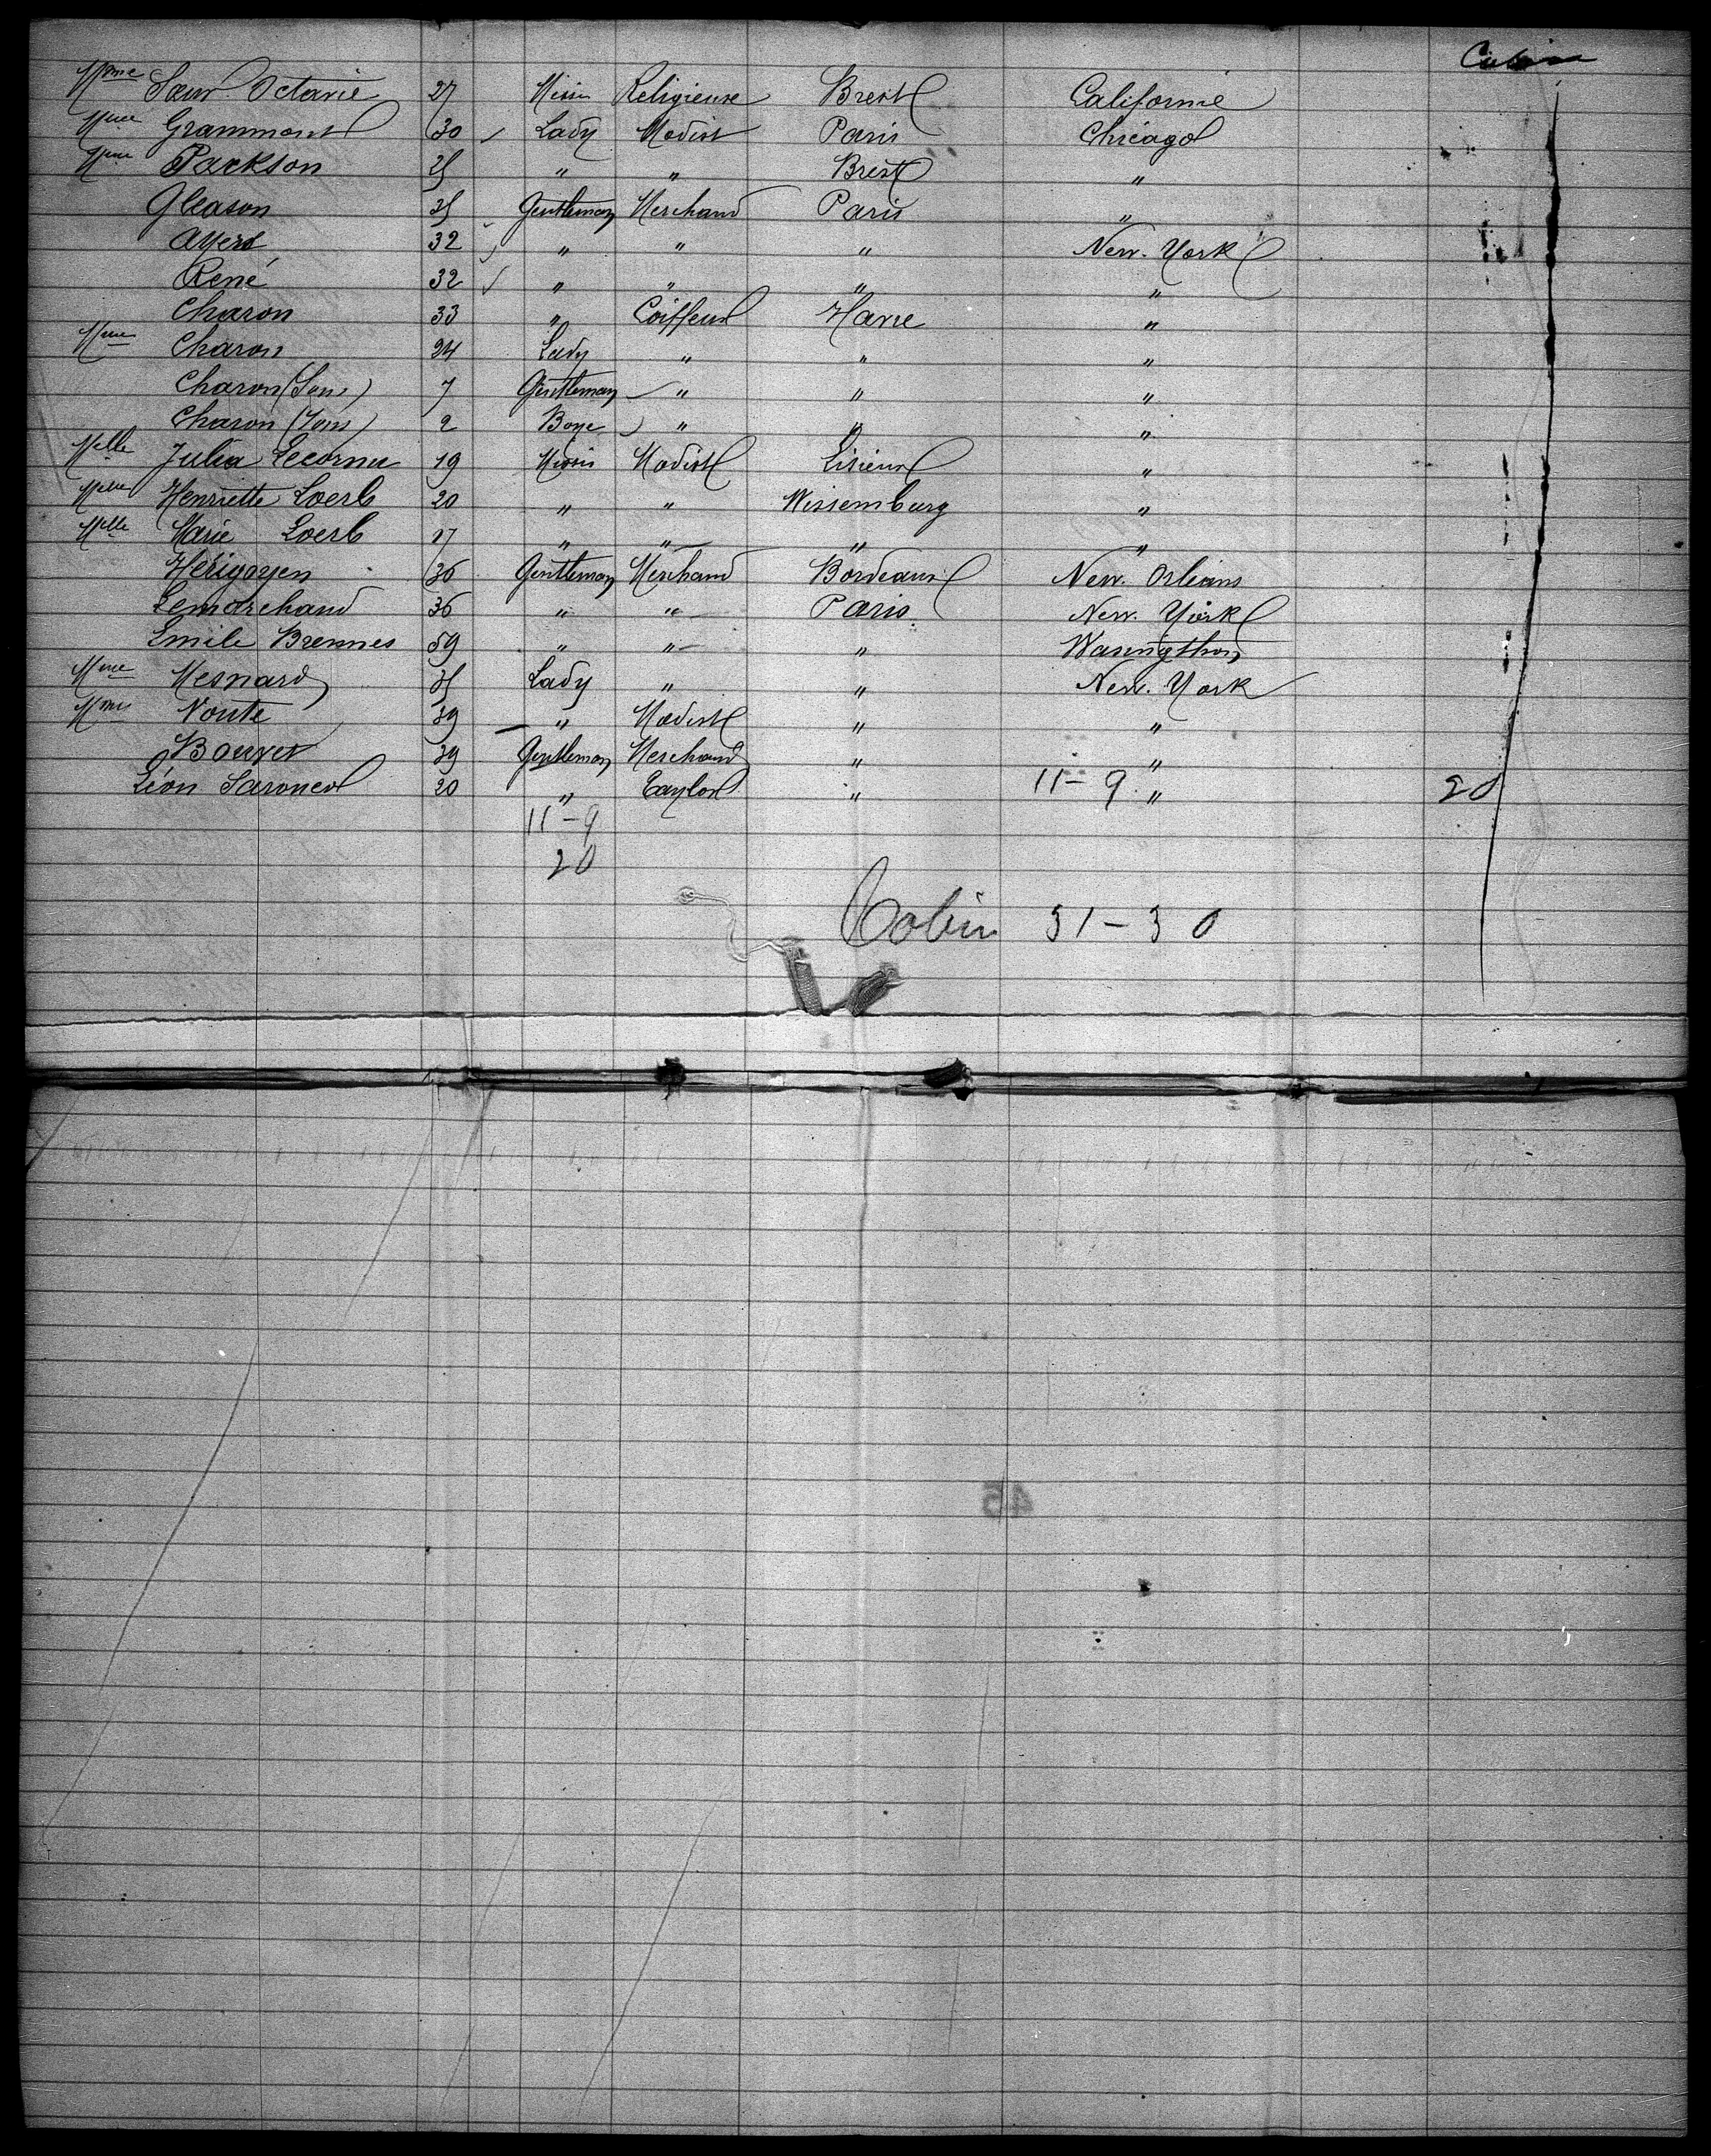 Cabin
Mme Sœur Octavie 27 Miss Religieuse Brest Californie
Mme Grammont 30 Lady Modist Paris Chicago
Mme Packson 25 " " Brest "
Gleason 35 Gentleman Merchand Paris "
Ayers 32 " " " New. York
René 32 " " " "
Charon 33 " Coiffeur Havre "
Mme Charon 24 Lady " " "
Charon (Sons) 7 Gentleman " " "
Charon (Sons) 2 Boye " " "
Melle Julia Lecornu 19 Miss Modist Lisieux "
Melle Henriette Loerb 20 " " Wissemburg "
Melle Marie Loerb 17 " " " "
Hérigoyen 36 Gentleman Merchand Bordeaux New. Orleans
Lemarchand 36 " " Paris New. York
Emile Brennes 59 " " " Wasingthon
Mme Mesnard 35 Lady " " New. York
Mme Voute 39 " Modist " "
Bouvet 39 Gentleman Merchand " "
Léon 20 " Taylor " 11-9 " 20
11-9
20
Cabin 31-30
45